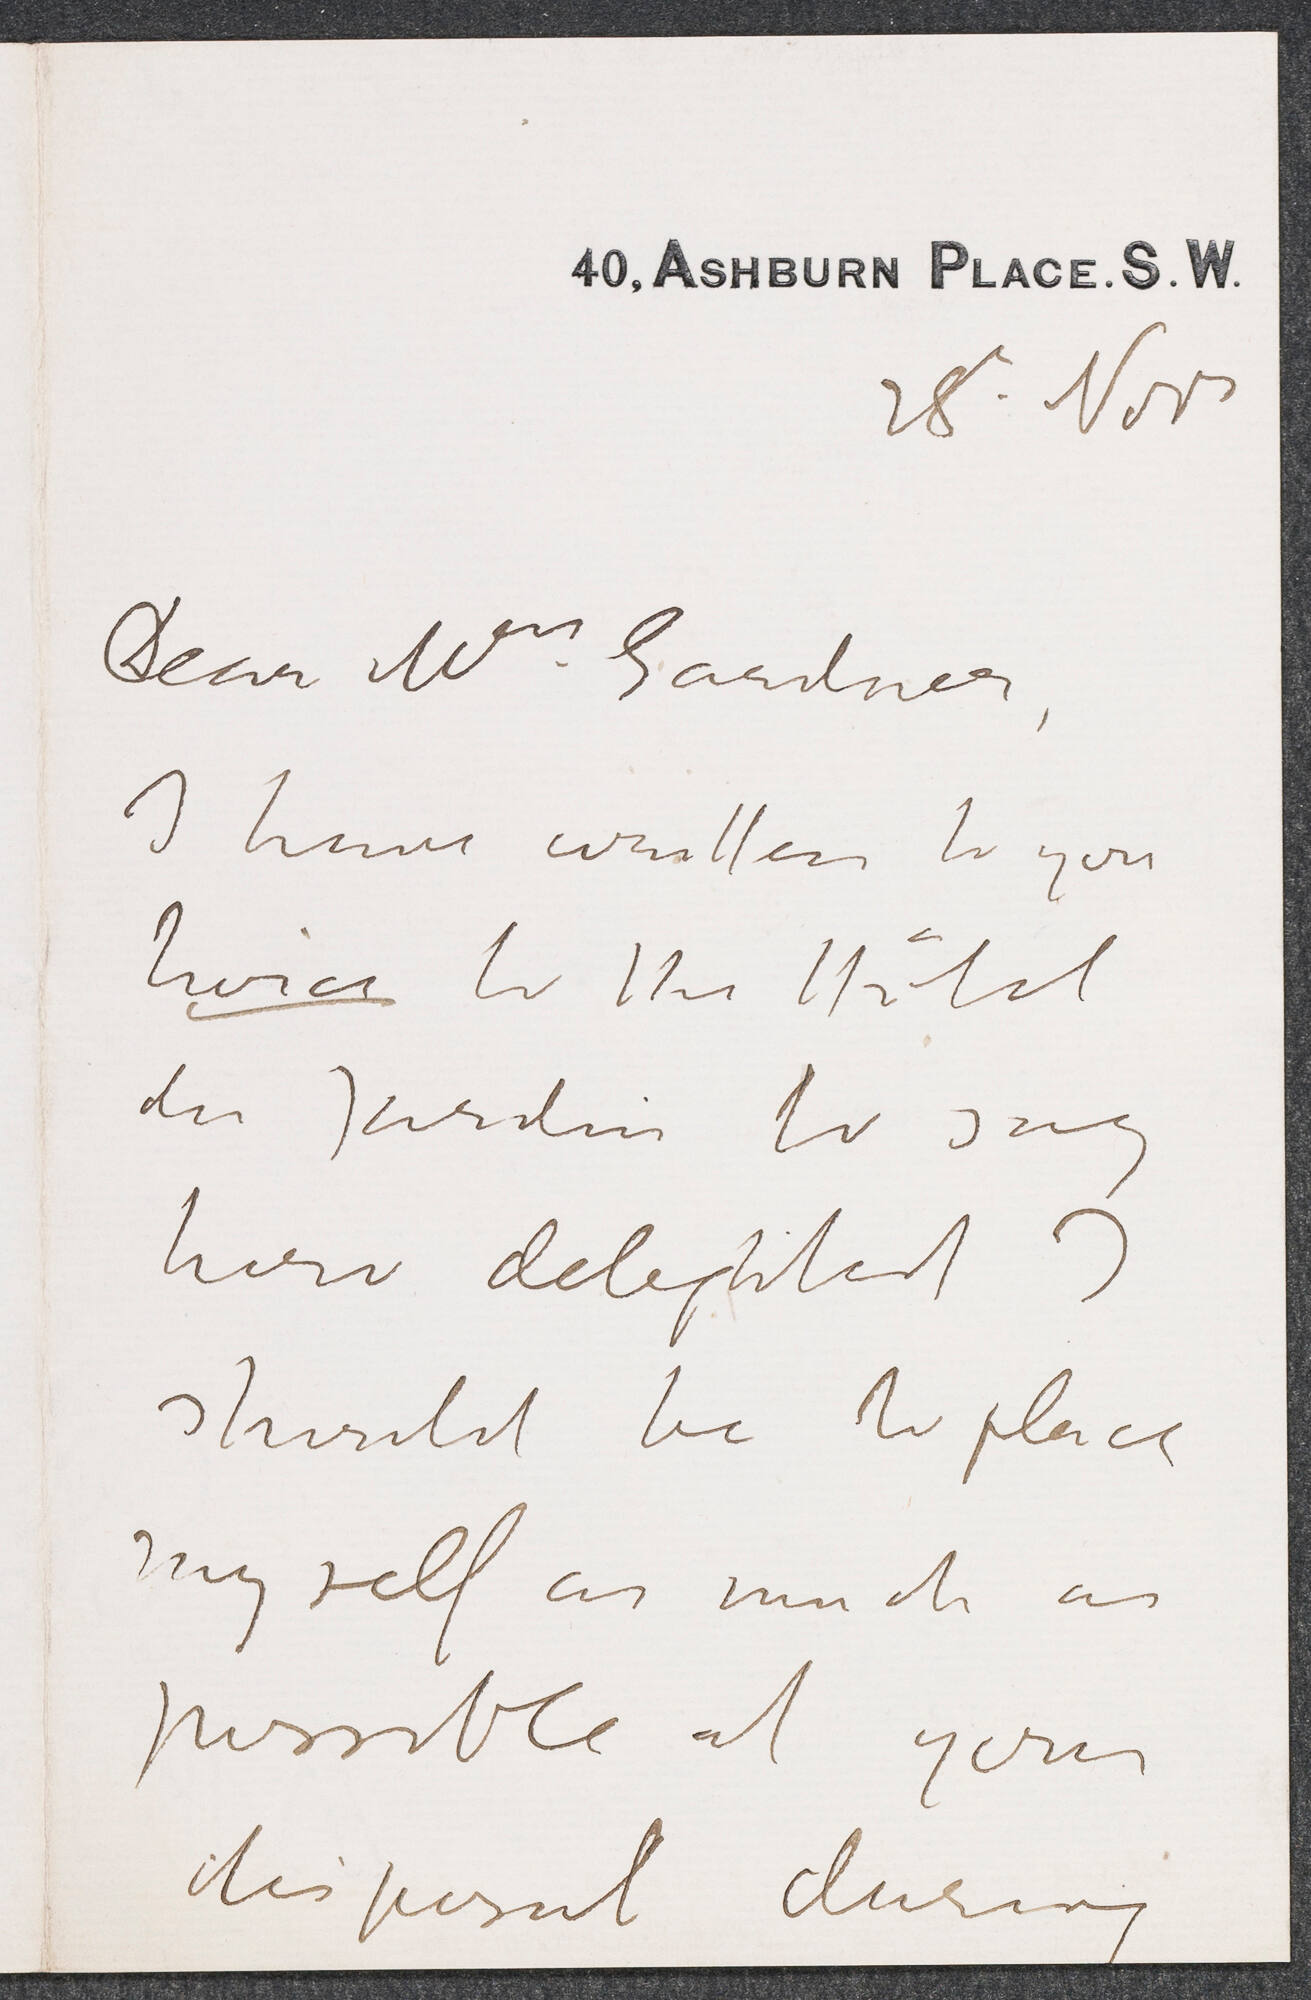 40, ASHBURN PLACE. S. W.
28th. Novr
Dear Mrs. Gardner,
I have written to you
twice to the Hôtel
du Jardin to say
how delighted I
should be to place
myself as much as
possible at your
disposal during